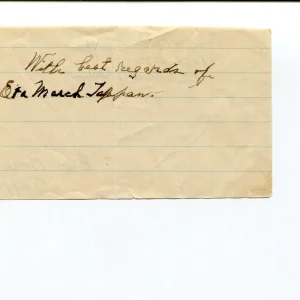 With best regards of
Eva March Tappan.